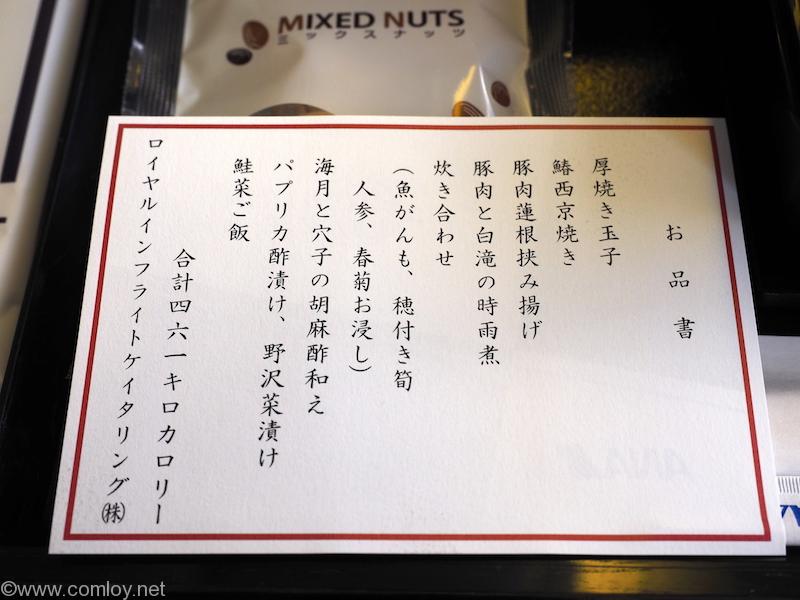 MIXED NUTS
ミックスナッツ
お品書
厚焼き玉子
鰆西京焼き
豚肉蓮根挟み揚げ
豚肉と白滝の時雨煮
炊き合わせ
(魚がんも、穂付き筍
人参、春菊お浸し)
海月と穴子の胡麻酢和え
パプリカ酢漬け、野沢菜漬け
鮭菜ご飯
合計四六一キロカロリー
ロイヤルインフライトケイタリング㈱
©www.comloy.net